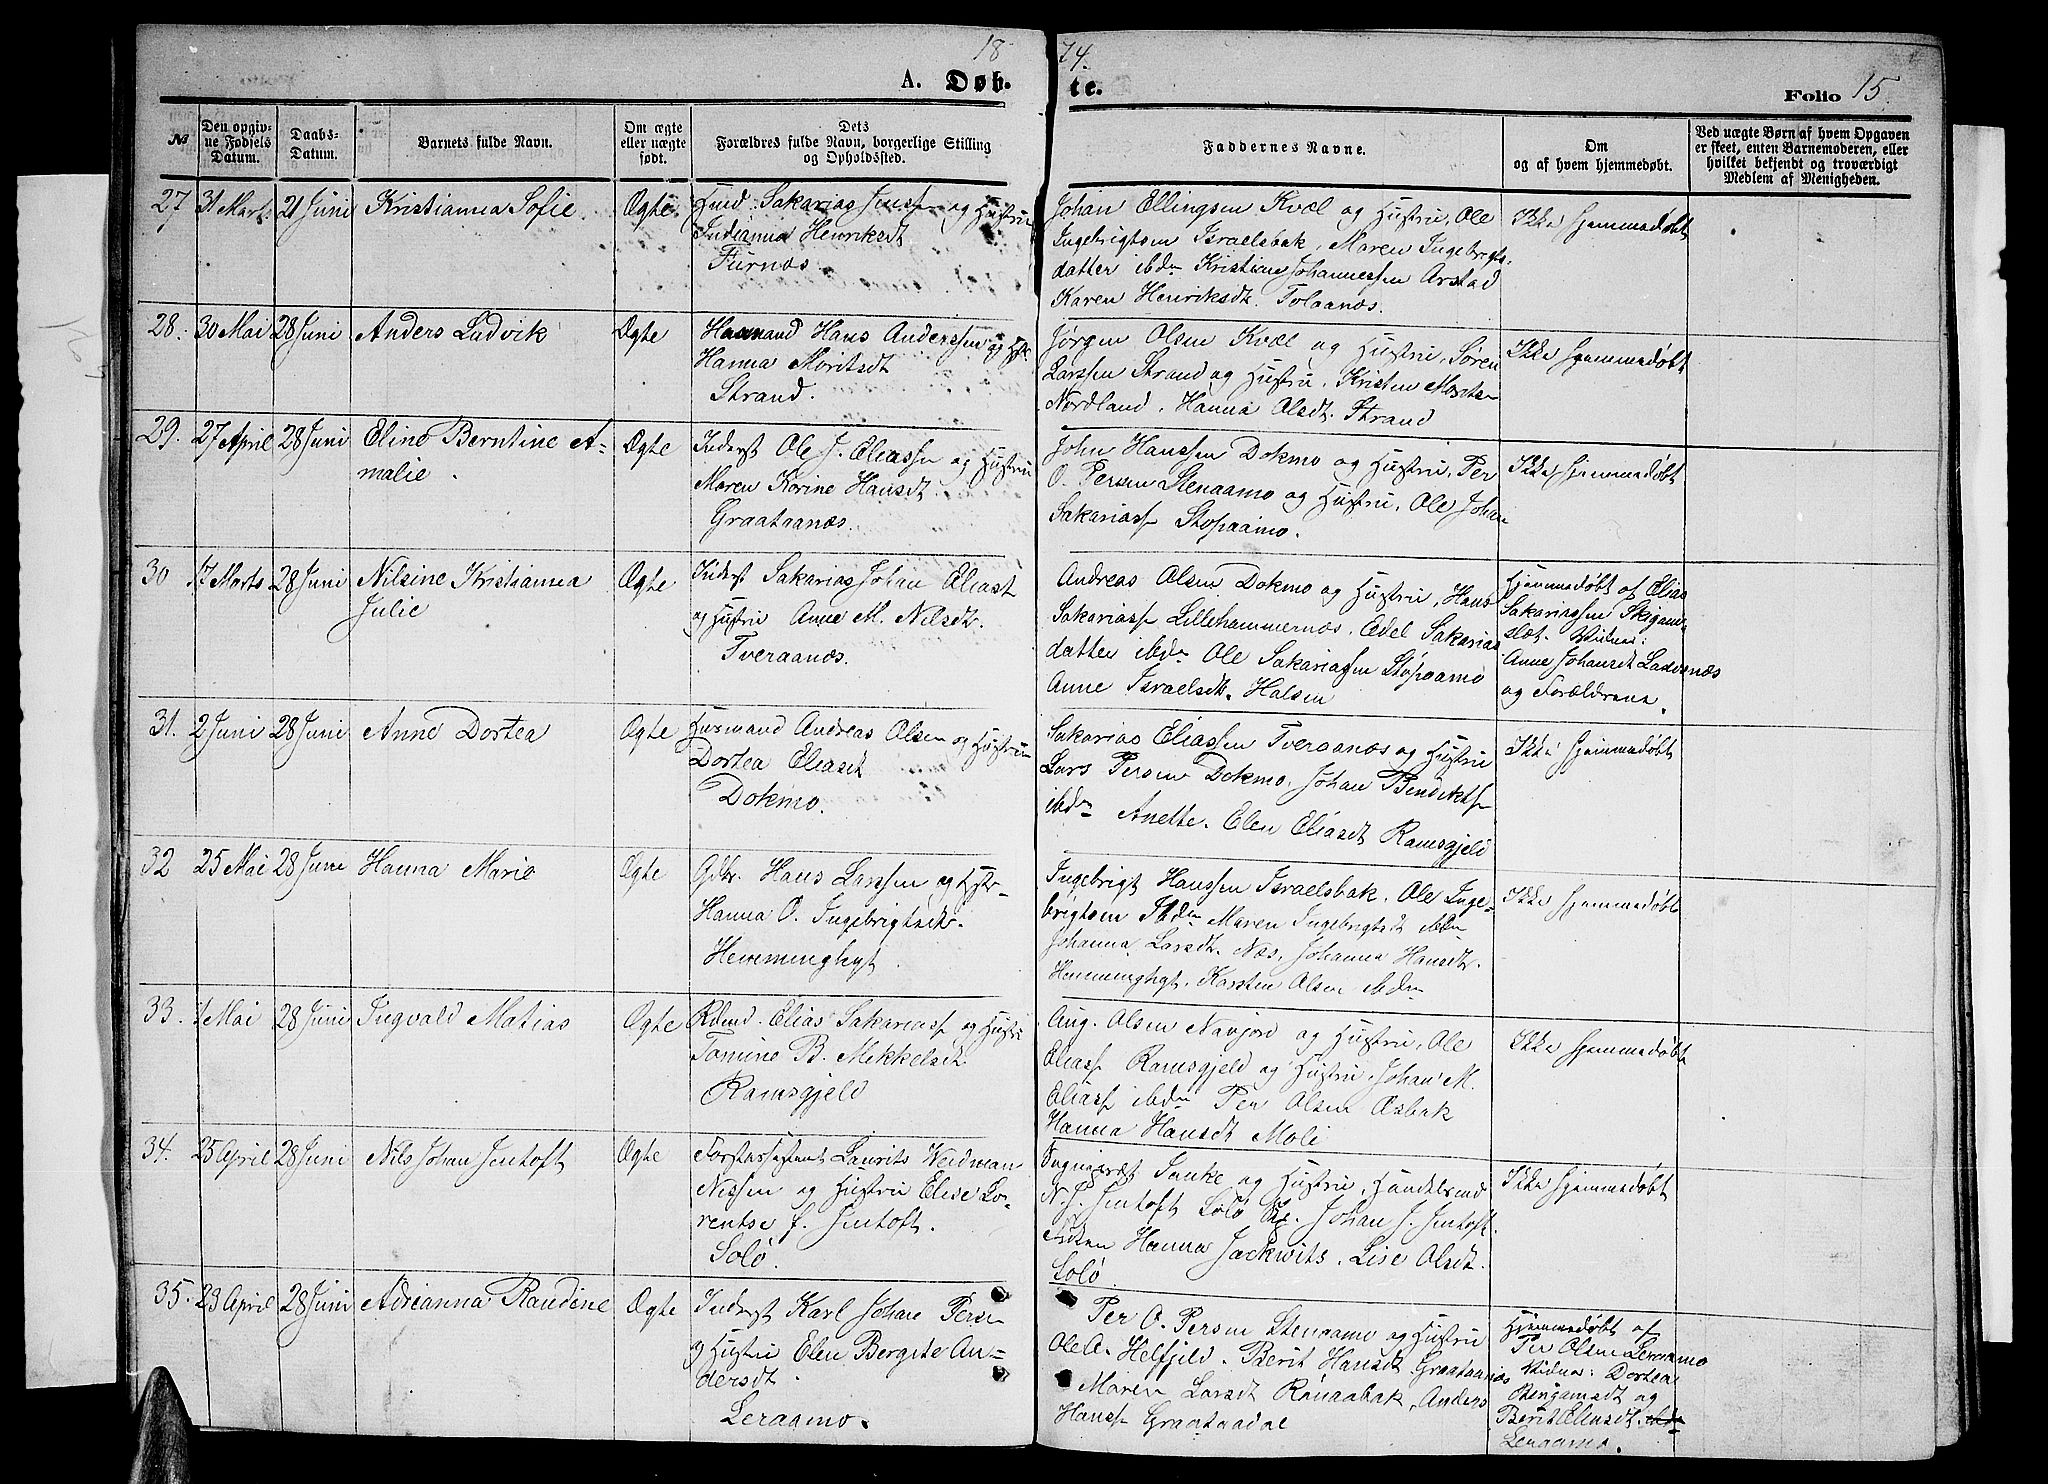 1874.
A. Døbte.
Folio 15.
№
Den opgivne Fødsels Datum.
Daabs-Datum.
Barnets fulde Navn.
Om ægte eller uægte født.
Dets Forældres fulde Navn, borgerlige Stilling og Opholdssted.
Faddernes Navne.
Om og af hvem hjemmedøbt.
Ved uægte Børn af hvem Opgaven er skeet, enten Barnemoderen, eller hvilket bekjendt og troværdigt Medlem af Menigheden.
27 31 Marts 21 Juni Kristianna Sofie. Ægte.
Sakarias Jenss. og Hustru
Indianna Henriksdt
Furnæs
Johan Ellingsen Kvæl og Hustru, Ole
Ingebrigtsen Israelsbak, Maren Ingebrigts-
datter ibdm Kristian Johannessen Arstad
Karen Henriksdt. Tolaanæs.
Ikke hjemmedøbt
28. 30 Mai 28 Juni Anders Ludvik Ægte
Husmand Hans Anderssen og Hstr.
Hanna Moritsdt
Strand.
Jørgen Olsen Kvæl og Hustru, Søren
Larssen Strand og Hustru, Kristen Morits
Nordland, Hanna Olsdt. Strand
Ikke hjemmedøbt
29. 27 April 28 Juni Eline Berntine A-
malie.
Ægte
Inderst Ole J. Eliassn og Hustru
Maren Karine Hansdt.
Graataanæs.
John Hanssen Dokmo og Hustru, Per
O. Persen Stenaamo og Hustru, Ole Johan
Sakariass. Stopaamo.
Ikke hjemmedøbt
30 17 Marts 28 Juni Nilsine Kristianna
Julie
Ægte
Inderst Sakarias Johan Eliass.
og Hustru Anne M. Nilsdt.
Tveraanæs.
Andreas Olsen Dokmo og Hustru, Hans
Sakariass. Lillehammernæs, Edel Sakarias
datter ibdm Ole Sakariassen Stopaamo
Anne Israelsdt. Halsen
Hjemmedøbt af Elias
Sakariassen
Vidner:
Anne Johansdt
og Forældrene.
31. 2 Juni 28 Juni Anne Dortea Ægte
Husmand Andreas Olsen og Hustru
Dortea Eliasdt
Dokmo.
Sakarias Eliassen Tveraanæs og Hustru
Lars Persen Dokmo, Johan Bendikts.
ibdm Anette. Elen Eliasdt Ramsgjeld
Ikke hjemmedøbt
32 25 Mai 28 Juni Hanna Marie Ægte
Gdbr. Hans Larssen og Hstr.
Hanna O. Ingebrigtsdtr.
Hemminghyt.
Ingebrigt Hanssen Israelsbak, Ole Inge-
brigtsen Ibdm Maren Ingebrigtsdt ibdm
Johanna Larsdt. Næs, Johanna Hansdt.
Hemminghyt, Karsten Olsen ibdm
Ikke hjemmedøbt
33. 1 Mai 28 Juni Ingvald Matias Ægte
Elias Sakariass. og Hustr
Tomine B. Mikkelsdt
Ramsgjeld
Aug. Olsen Navjord og Hustru, Ole
Eliass. Ramsgjeld og Hustru, Johan M.
Eliass. ibdm Per Olsen Æsbak
Hanna Hansdt Moli
Ikke hjemmedøbt
34. 25 April 28 Juni Nils Johan Jentoft Ægte
Forstassistent Laurits Weidman
Nissen og Hustru Elise Lo-
rentse f. Jentoft.
Solø.
Sogneprest og Hustru, Handelsmd
N. J. Jentoft Solø Johan J. Jentoft.
Frøken Hanna Jackwits, Lise Olsdt.
Solø
Ikke hjemmedøbt
35. 23 April 28 Juni Adrianna Randine Ægte
Inderst Karl Johan Persn
og Hustru Elen Bergite An-
dersdt.
Leraamo.
Per O. Persen Stenaamo og Hustru
Ole A. Helfjeld. Berit Hansdt Graataanæs
Maren Larsdt Rauaabak, Anders
Hanss. Graataadal
Hjemmedøbt af
Per Olsen Leraamo
Vidner: Dortea
Bengamsdt og
Berit Elensdt.
Leraamo.